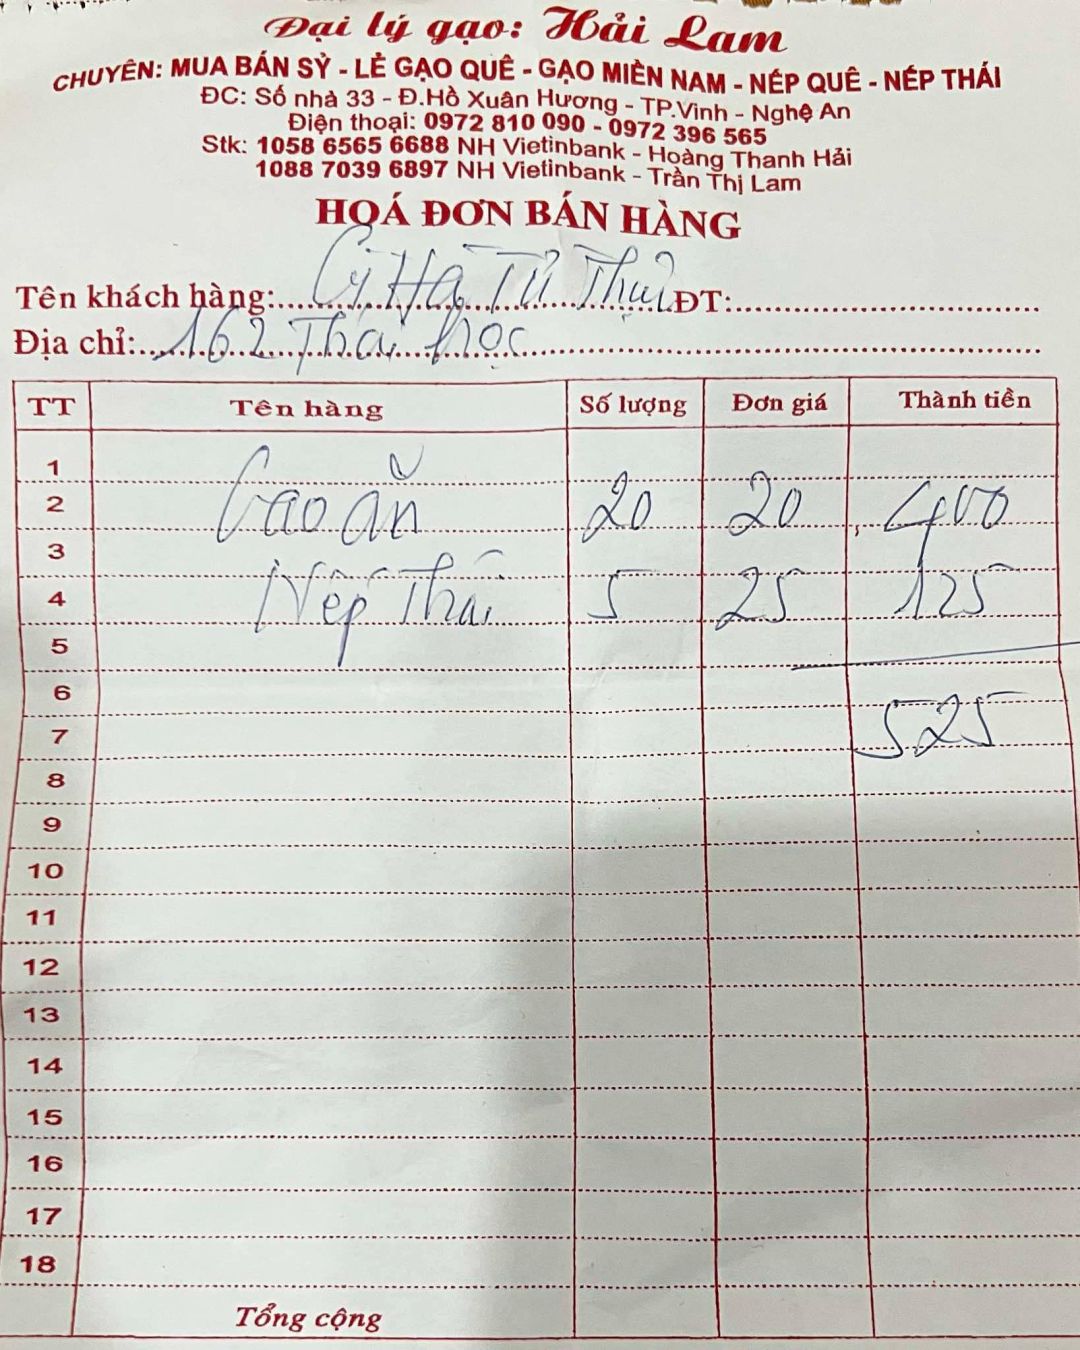 Đại lý gạo: Hải Lam
CHUYÊN: MUA BÁN SỶ - LẺ GẠO QUÊ - GẠO MIỀN NAM - NÉP QUÊ - NÉP THÁI
ĐC: Số nhà 33 - Đ.Hồ Xuân Hương - TP.Vinh - Nghệ An
Điện thoại: 0972 810 090 - 0972 396 565
Stk: 1058 6565 6688 NH Vietinbank - Hoàng Thanh Hải
1088 7039 6897 NH Vietinbank - Trần Thị Lam
HOÁ ĐƠN BÁN HÀNG
Tên khách hàng: Hà Thuỷ ĐT:
Địa chỉ: 162 Thái học
TT Tên hàng Số lượng Đơn giá Thành tiền
1
2 Gạo ăn 20 20 400
3
4 Nếp Thái 5 25 125
5
6
7 525
8
9
10
11
12
13
14
15
16
17
18
Tổng cộng